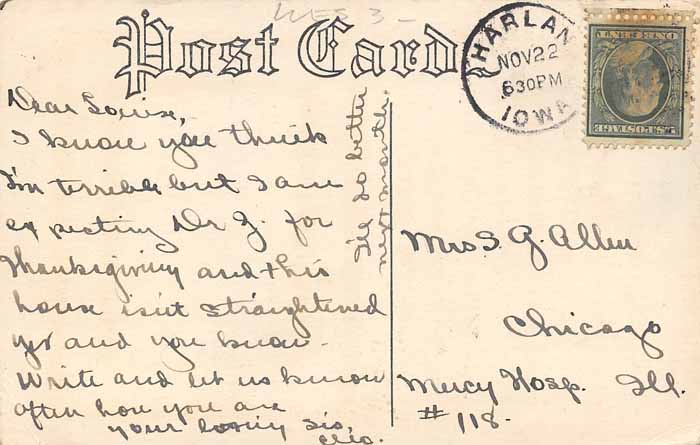 WES 3-
Post Card
HARLAN
NOV 22
630PM
IOWA
U.S. POSTAGE
ONE CENT
Dear Louise,
I know you think
I'm terrible but I am
expecting Dr J. for
Thanksgiving and this
house isn't straightened
yet and you know -
Write and let us know
often how you are
your loving sis,
Cleo.
I'll do better
next month.
Mrs S. G. Allen
Chicago
Mercy Hosp. Ill.
# 118.